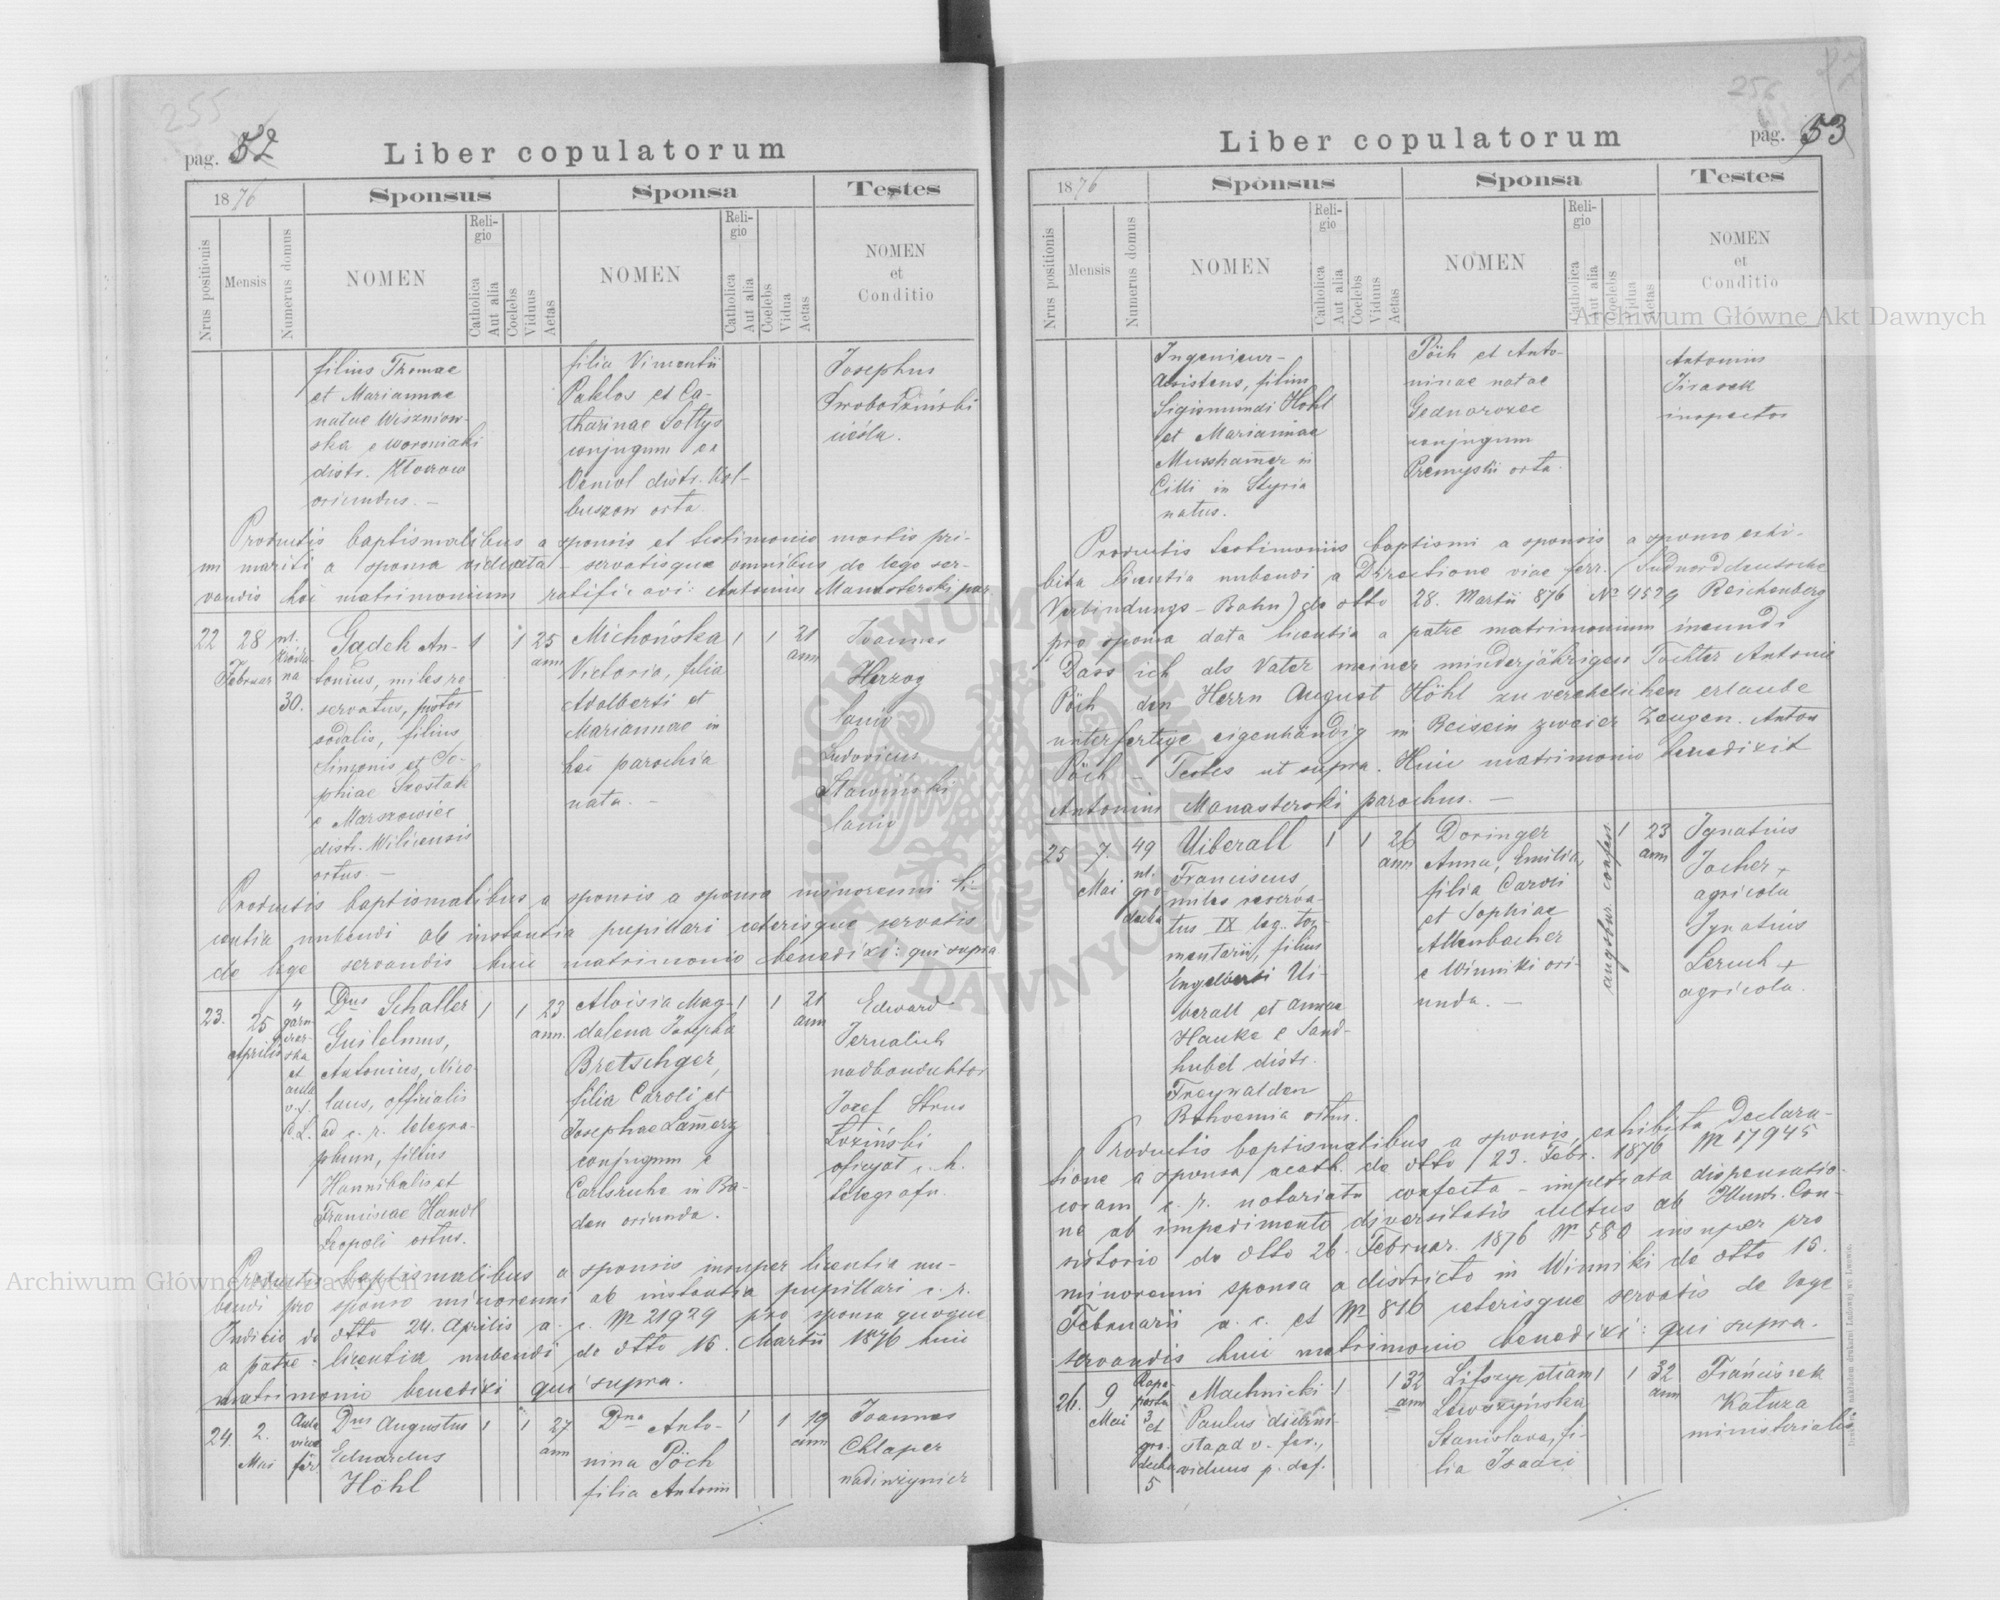 255
pag. 52
Liber copulatorum
1876
Sponsus
Sponsa
Testes
Nrus positionis
Mensis
Numerus domus
NOMEN
Religio
Catholica
Aut alia
Coelebs
Viduus
Aetas
NOMEN
Religio
Catholica
Aut alia
Coelebs
Vidua
Aetas
NOMEN
et
Conditio
filius Thomae
et Mariannae
natae Wiszniow-
ska e Woroniaki
distr. Złoczow
oriundus. —
filia Vincentii
Paklos et Ca-
tharinae Sołtys
conjugum ex
distr. Kol-
buszow orta.
Josephus
Swobodziński
cieśla.
Productis baptismalibus a sponsis et testimonio mortis pri-
mi mariti a sponsa viduata – servatisque omnibus de lege ser-
vandis hoc matrimonium ratificavi: Antonius Manasterski par.
22
28
Februar
30.
Gadek An-
tonius, miles re
servatus, pistor
sodalis, filius
Simonis et So-
phiae Szostak
e Marszowice
distr. Wilicensis
ortus. —
1
1
25
ann
Michońska
Victoria, filia
Adalberti et
Mariannae in
hac parochia
nata. —
1
1
21
ann
Joannes
Herzog
lanio
Ludovicus
Stawiński
lanio
Productis baptismalibus a sponsis a sponsa minorenni li-
centia nubendi ab instantia pupillari ceterisque servatis
de lege servandis huic matrimonio benedixi: qui supra
23.
25
Aprilis
Dnus Schaller
Guilelmus,
Antonius, Nico-
laus, officialis
ad c. r. telegra-
phum, filius
Hannibalis et
Franciscae Handl
Leopoli ortus.
1
1
23
ann.
Aloisia Mag-
dalena Josepha
Bretschger,
filia Caroli et
Josephae Lamerz
conjugum e
Carlsruhe in Ba-
den oriunda.
1
1
21
ann
Edward
nadkonduktor
Józef Strus
Łoziński
oficyał c. k.
telegrafu.
Productis baptismalibus a sponsis insuper licentia nu-
bendi pro sponso minorenni ab instantia pupillari c. r.
Judicio de dtto 24. Aprilis a. c. No 21929 pro sponsa quoque
a patre licentia nubendi de dtto 16. Martii 1876 huic
matrimonio benedixi qui supra.
24.
2.
Mai
Dnus Augustus
Eduardus
Höhl
1
1
27
ann
Dna Anto-
nina Pöch
filia Antonii
1
1
19
ann
Joannes
Chlaper
nadinżynier
256
pag. 53
Liber copulatorum
1876
Sponsus
Sponsa
Testes
Nrus positionis
Mensis
Numerus domus
NOMEN
Religio
Catholica
Aut alia
Coelebs
Viduus
Aetas
NOMEN
Religio
Catholica
Aut alia
Coelebs
Vidua
Aetas
NOMEN
et
Conditio
Ingenieur-
Assistens, filius
Sigismundi Höhl
et Mariannae
Musshamer in
Cilli in Styria
natus.
Pöch et Anto-
ninae natae
Gednorozec
conjugum
Premyslii orta.
Antonius
Jirasek
inspector
Productis testimoniis baptismi a sponsis a sponso exhi-
bita licentia nubendi a Directione viae ferr. (Südnorddeutsche
Verbindungs-Bahn) de dtto 28. Martii 876 No 4529 Reichenberg
pro sponsa data licentia a patre matrimonium ineundi
Dass ich als Vater meiner minderjährigen Tochter Antonie
Pöch den Herrn August Höhl zu verehelichen erlaube
unterfertige eigenhändig in Beisein zweier Zeugen. Anton
Pöch – Testes ut supra. Huic matrimonio benedixit
Antonius Manasterski parochus. —
25
7.
Mai
49
Uiberall
Franciscus
miles reserva-
tus IX leg. tor-
mentarii, filius
Engelberti Ui
berall et Annae
Hauke e Sand-
hubel distr.
Freywalden
Bohoemia ortus.
1
1
26
ann
Doringer
Anna, Emilia,
filia Caroli
et Sophiae
Altenbacher
e Winniki ori-
unda. —
augsbur. confess
1
23
ann
Ignatius
Jocher +
agricola
Ignatius
Lerich +
agricola.
Productis baptismalibus a sponsis, exhibita Declara-
tione a sponsa acath. de dtto 23. Febr. 1876 No 17945
coram c. r. notariatu confecta – impetrata dispensatio-
ne ab impedimento diversitatis cultus ab Illustr. Con-
sistorio de dtto 26. Februar. 1876 No 580 insuper pro
minorenni sponsa a districto in Winniki de dtto 15.
Februarii a. c. et No 816 ceterisque servatis de lege
servandis huic matrimonio benedixi: qui supra.
26.
9
Mai
3
et
gro-
decka
5
Machnicki
Paulus
sta ad v. fer.,
viduus p. def.
1
1
32
ann
Lifszyc etiam
Lewczyńska
Stanislava, fi-
lia Isaaci
1
1
32
ann
Franciszek
Katuza
ministerialis
Archiwum Główne Akt Dawnych
Archiwum Główne Akt Dawnych
ARCHIWUM GŁÓWNE AKT DAWNYCH